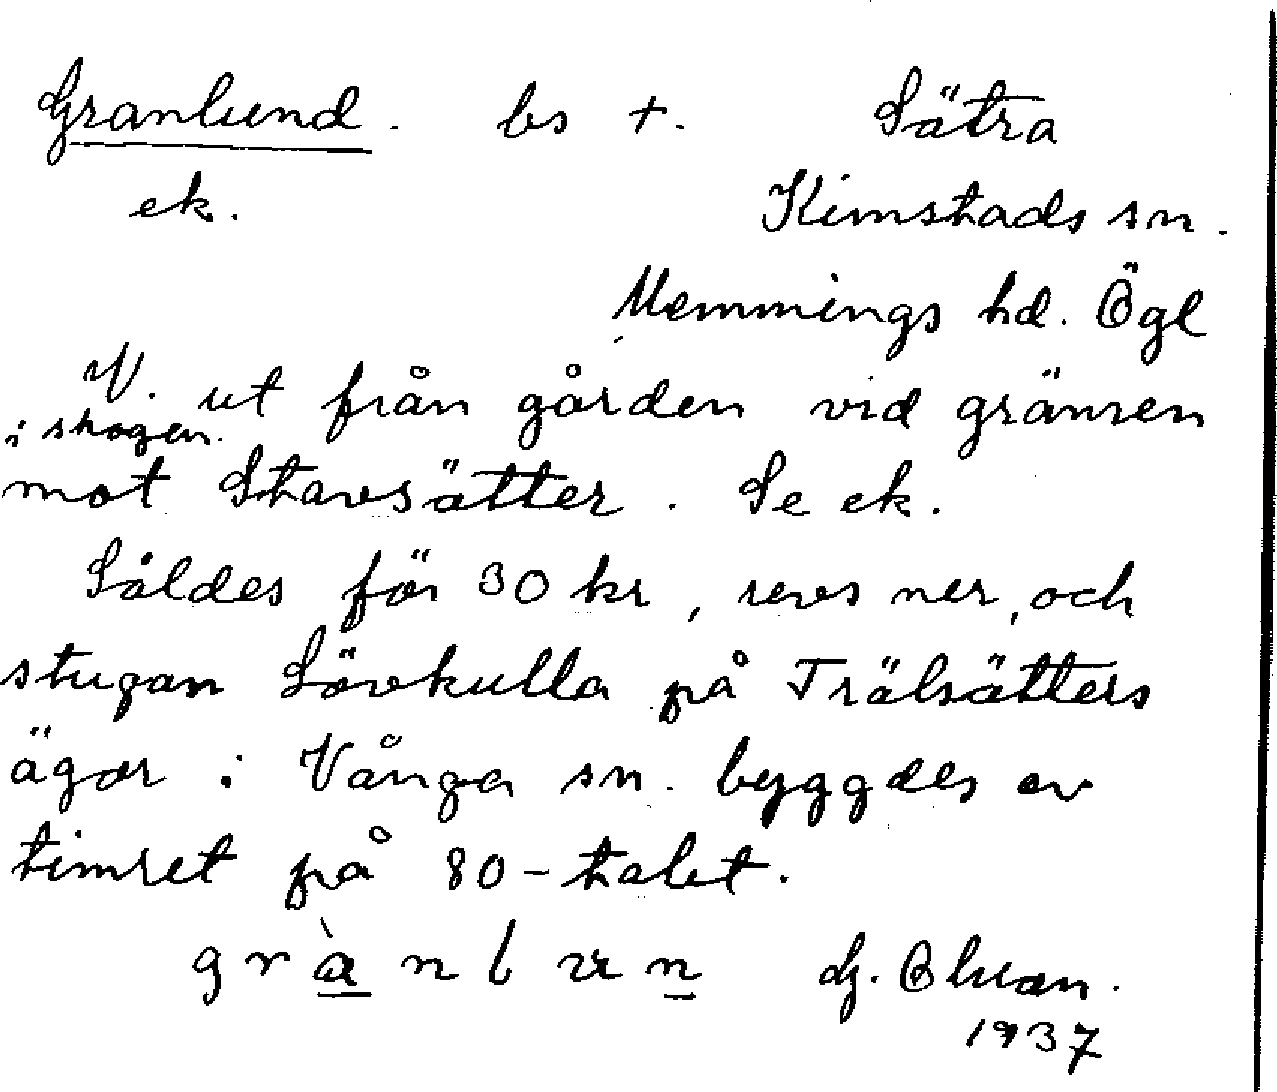 Granlund. bs +. Sätra
ek. Kimstads sn.
Memmings hd. Ögl
V. ut från gården vid gränsen
i skogen.
mot Stavsätter. Se ek.
Såldes för 30 kr, revs ner, och
stugan Lövkulla på Trälsätters
ägor i Vånga sn. byggdes av
timret på 80-talet.
grànlun G.
1937